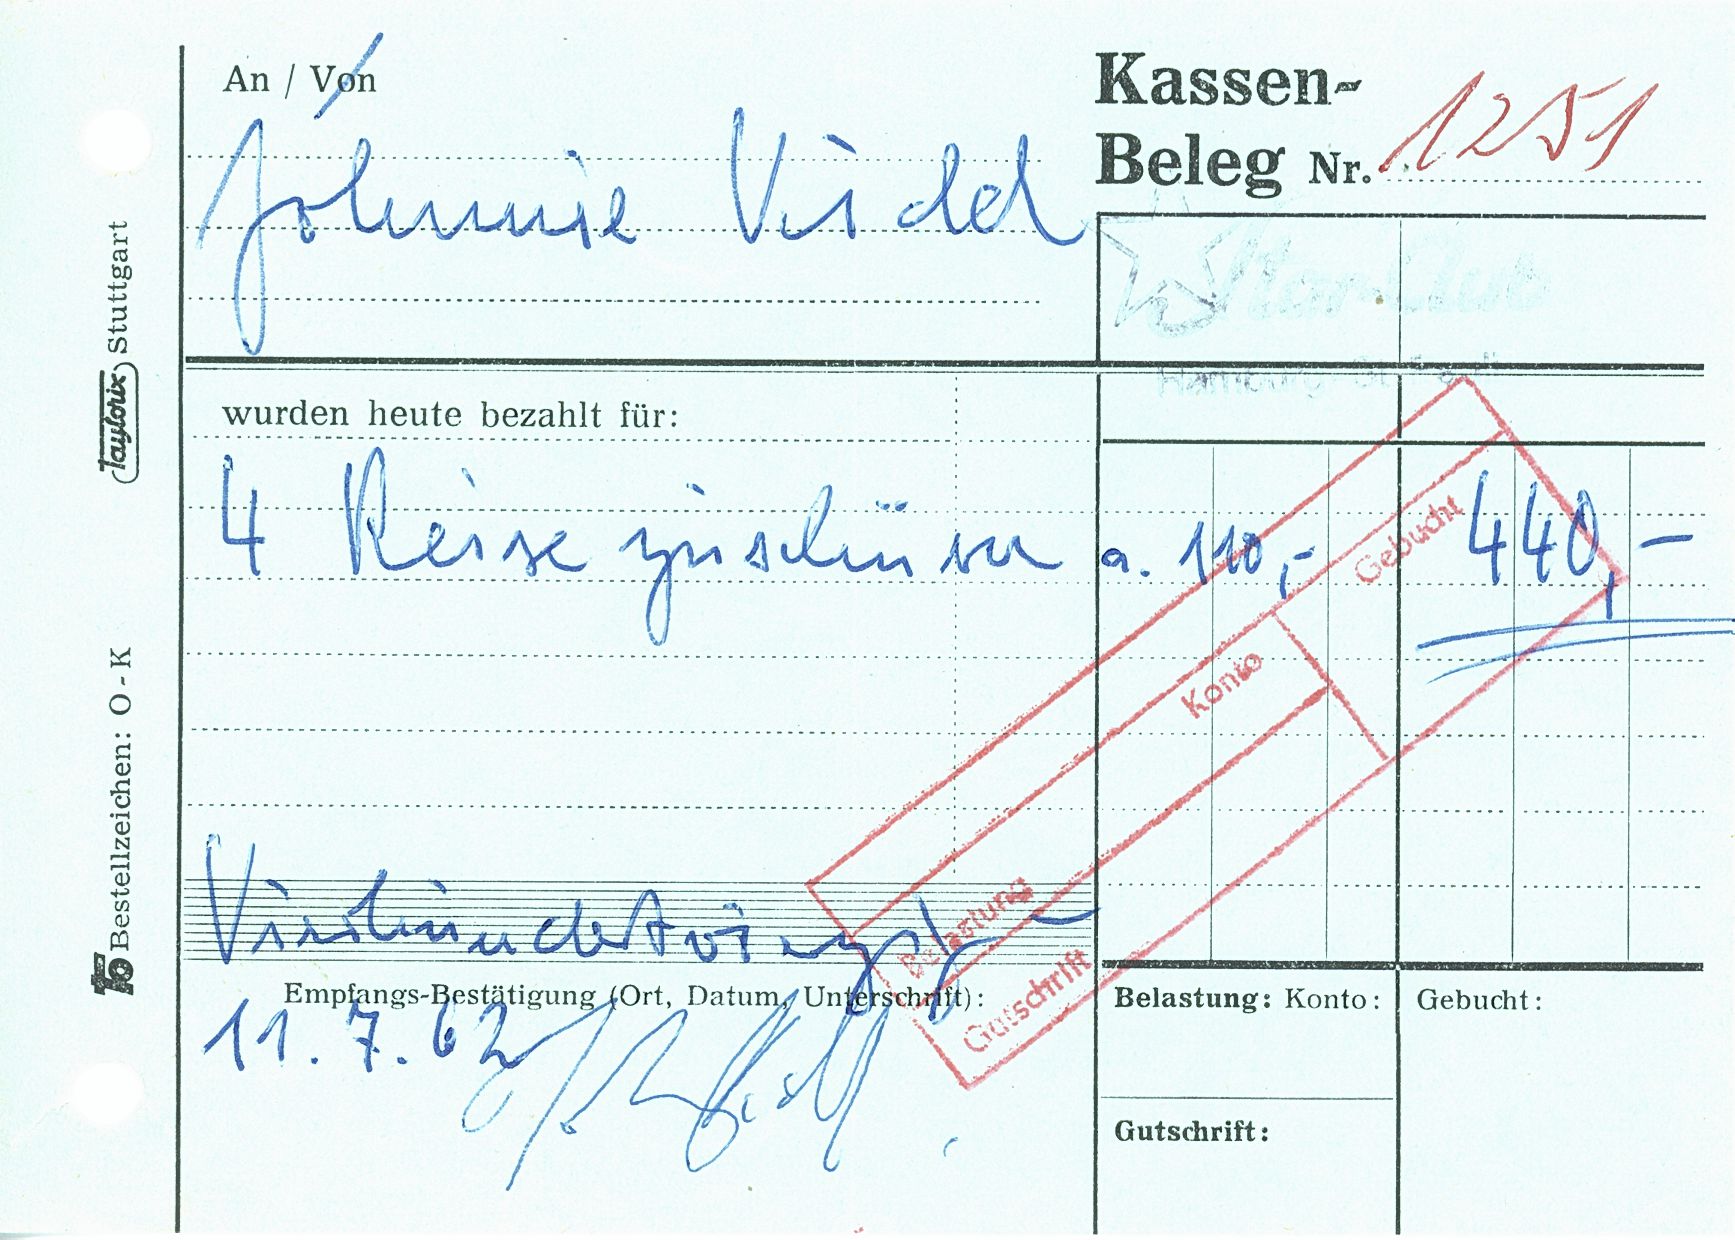 An / Von
Kassen-
Beleg Nr. 1251
Johnnie Vidd
Star-Club
Hamburg-St. Pauli
wurden heute bezahlt für:
4 Reise zuschüsse a. 110,- 440,-
Gebucht
Konto
Belastung
Gutschrift
Vierhundertvierzig
Empfangs-Bestätigung (Ort, Datum, Unterschrift):
11. 7. 62
Belastung: Konto:
Gebucht:
Gutschrift:
Taylorix Stuttgart
Bestellzeichen: O - K